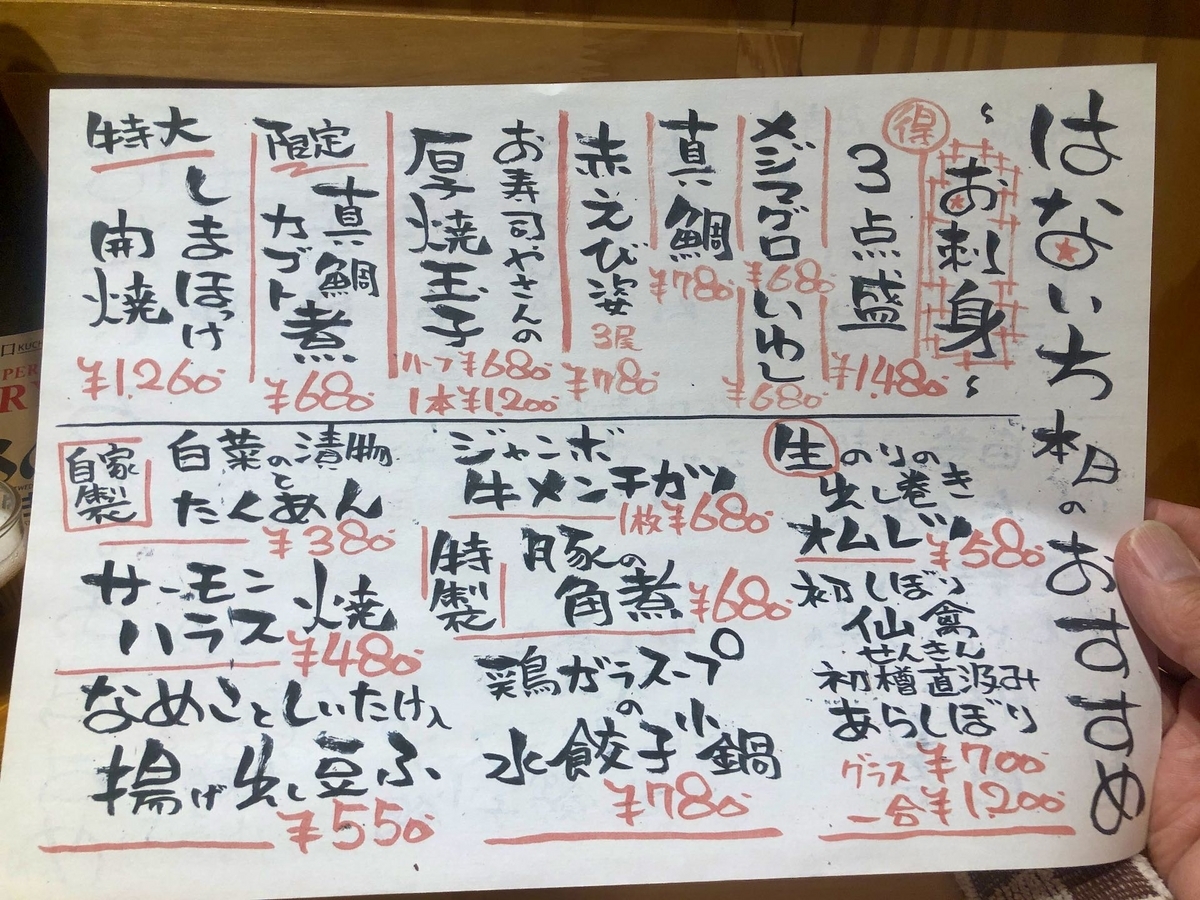 はないち 本日のおすすめ
~お刺身~
得
3点盛
¥1,480
メジマグロ
¥680
いわし
¥680
真鯛
¥780
赤えび姿
3尾
¥780
お寿司やさんの
厚焼玉子
ハーフ¥680
1本¥1,200
限定
真鯛
カブト煮
¥680
特大
しまほっけ
開焼
¥1,260
生のりの
出し巻き
オムレツ
¥580
初しぼり
仙禽
せんきん
初槽直汲み
あらしぼり
グラス ¥700
一合 ¥1,200
ジャンボ
牛メンチカツ
1枚¥680
特製
豚の
角煮
¥680
鶏ガラスープ
の
水餃子小鍋
¥780
自家製
白菜の漬物
と
たくあん
¥380
サーモン
ハラス焼
¥480
なめことしいたけ入
揚げ出し豆ふ
¥550
KUCH